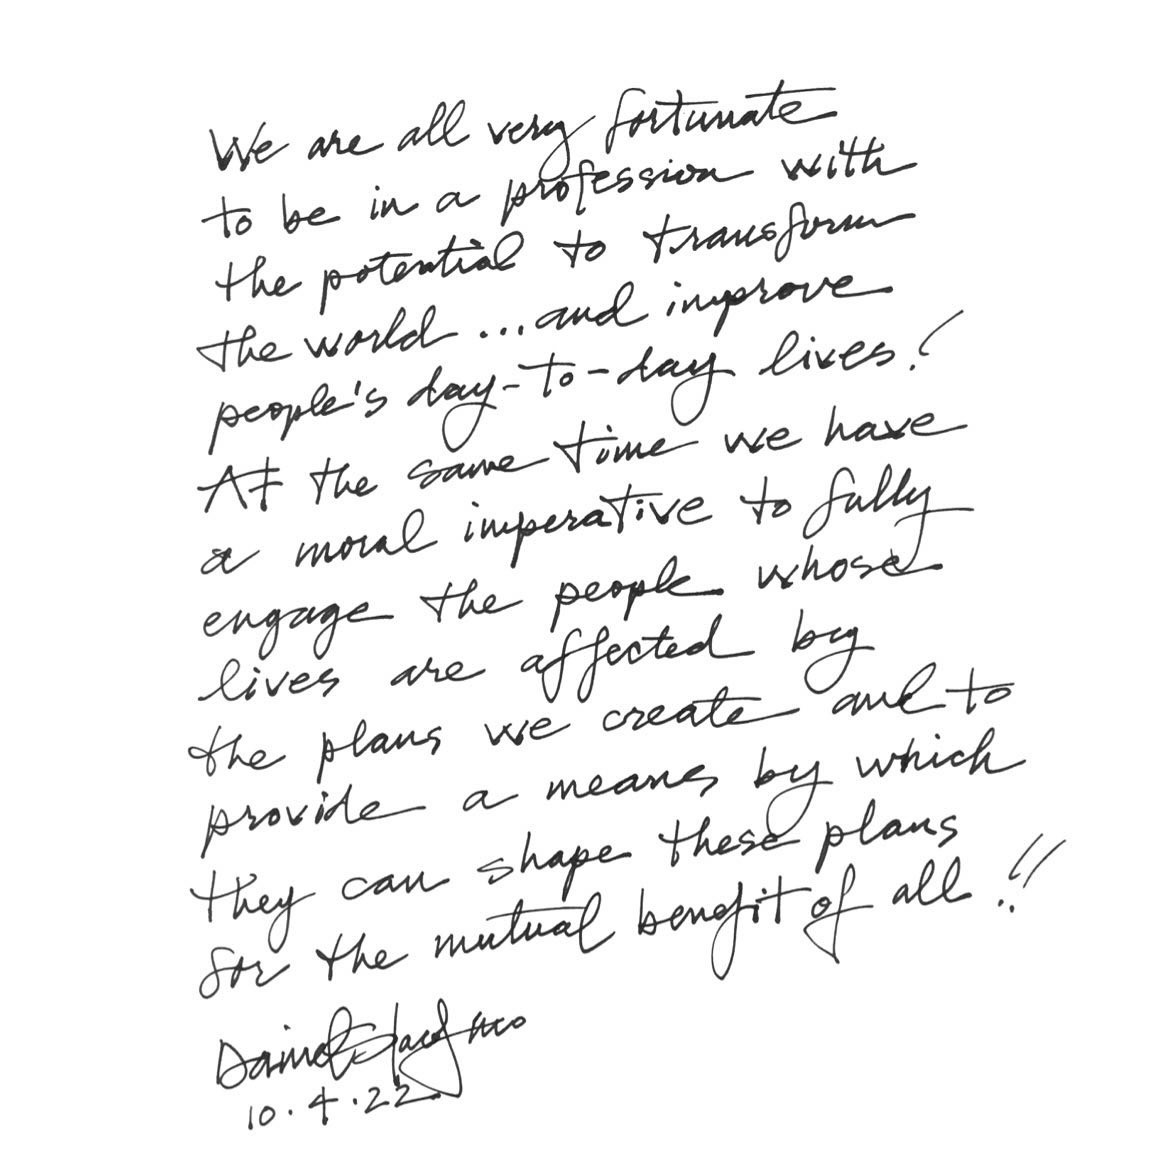 We are all very fortunate
to be in a profession with
the potential to transform
the world ... and improve
people's day-to-day lives!
At the same time we have
a moral imperative to fully
engage the people whose
lives are affected by
the plans we create and to
provide a means by which
they can shape these plans
for the mutual benefit of all!!
Daniel
10.4.22